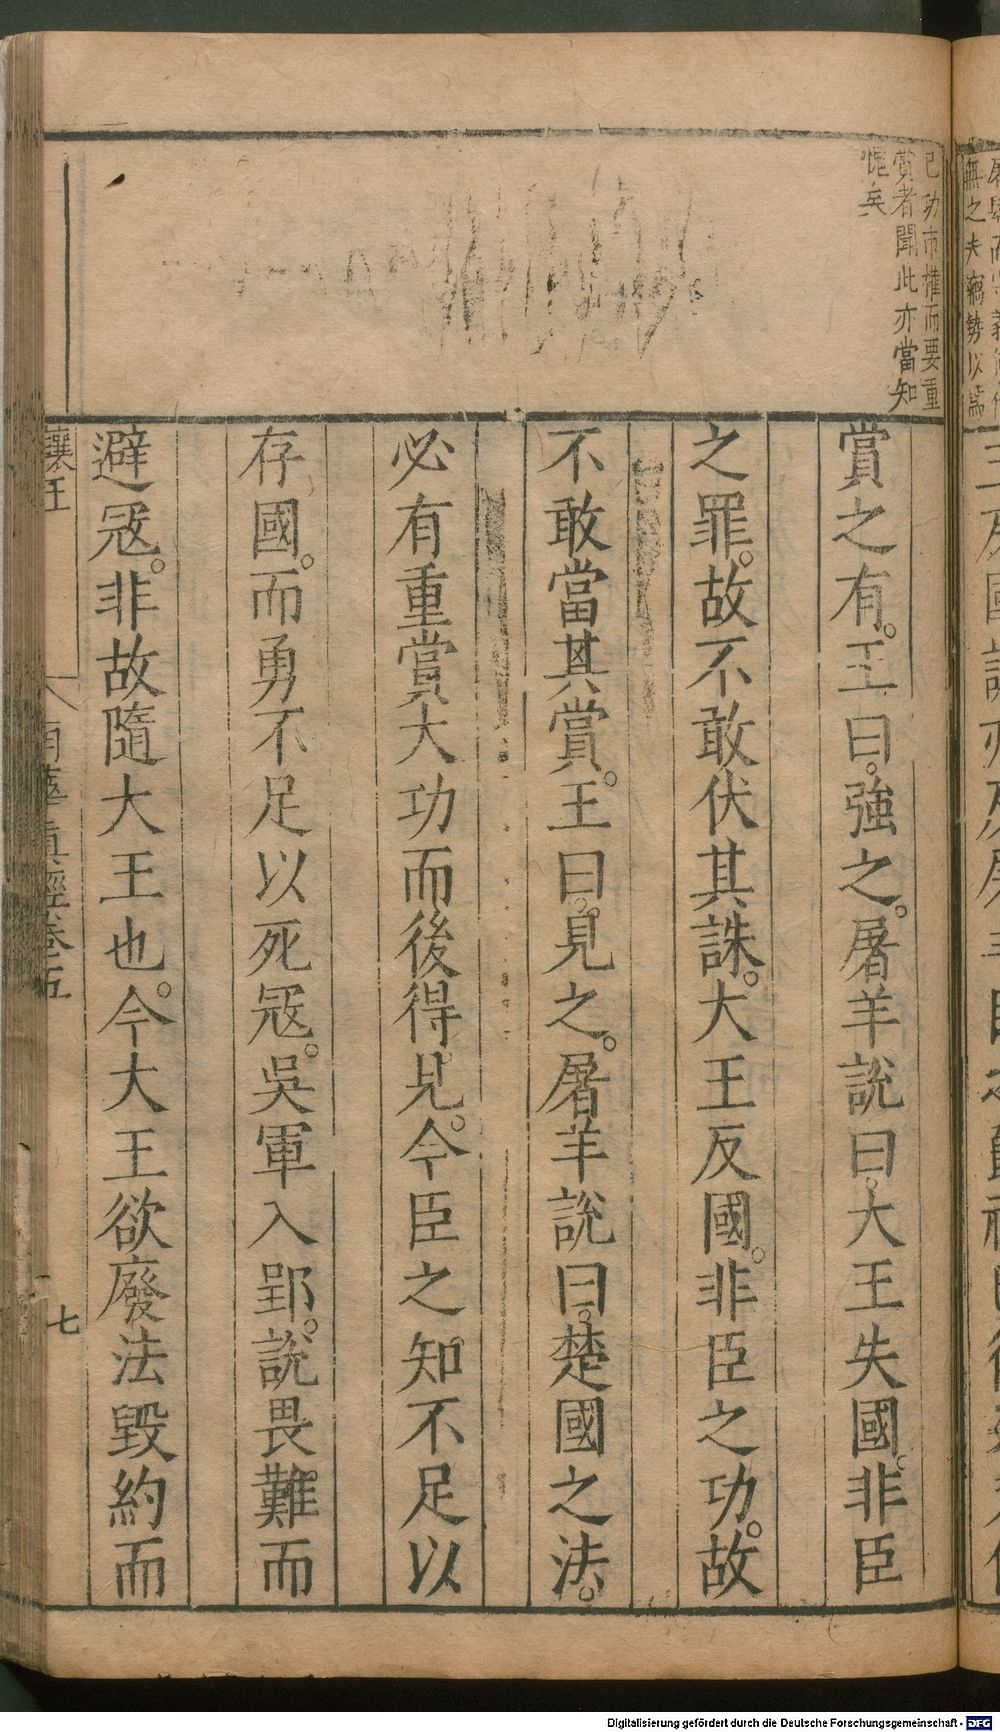 已功市權而要重
賞者聞此亦當知
愧矣
賞之有。王曰。強之。屠羊說曰。大王失國。非臣
之罪。故不敢伏其誅。大王反國。非臣之功。故
不敢當其賞。王曰。見之。屠羊說曰。楚國之法。
必有重賞大功而後得見。今臣之知不足以
存國。而勇不足以死寇。吳軍入郢。說畏難而
避寇。非故隨大王也。今大王欲廢法毀約而
讓王
南華真經卷五
七
Digitalisierung gefördert durch die Deutsche Forschungsgemeinschaft - DFG